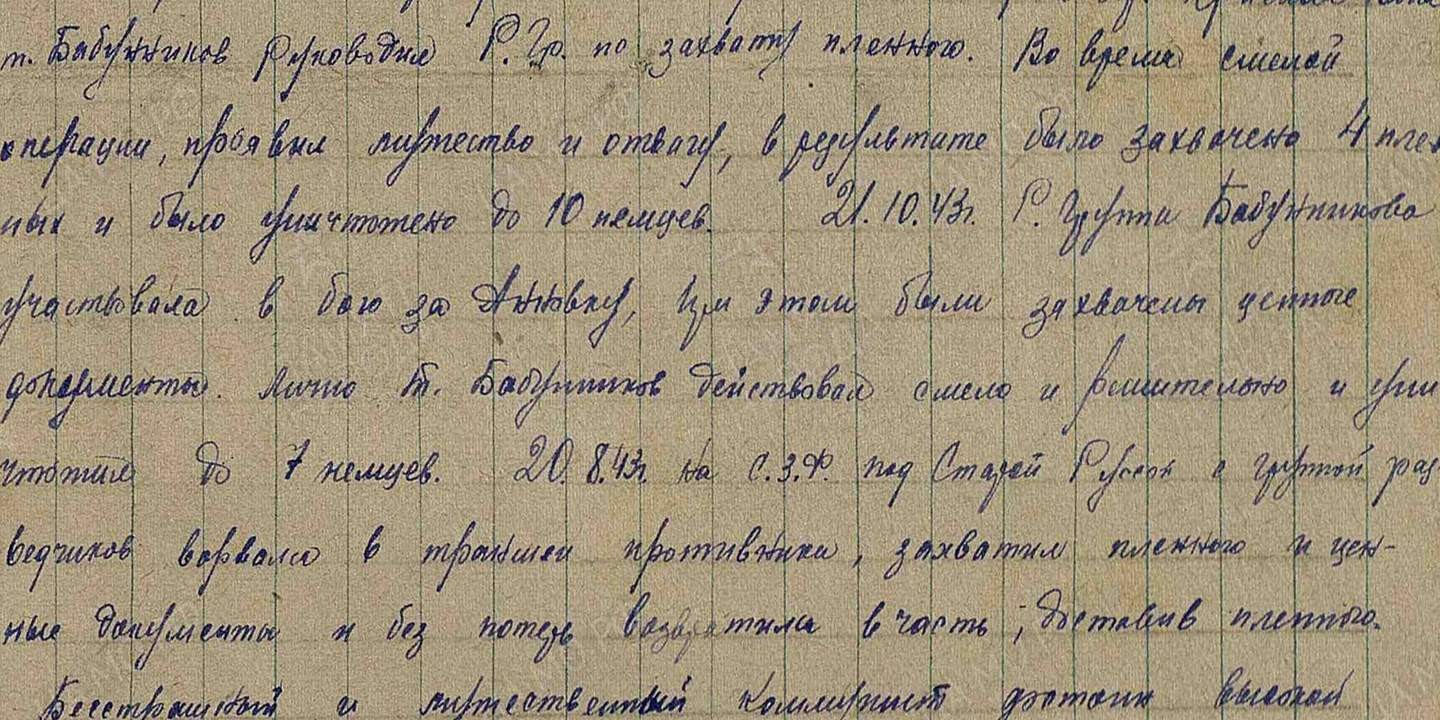 т. Бабушников руководил Р. Гр. по захвату пленного. Во время смелой
операции, проявил мужество и отвагу, в результате было захвачено 4 плен
ных и было уничтожено до 10 немцев. 21.10.43г. Р. Группа Бабушникова
участвовала в бою за Анновку, при этом были захвачены ценные
документы. Лично т. Бабушников действовал смело и решительно и уни
чтожил до 7 немцев. 20.8.43г. на С.З.Ф. под Старой Руссой с группой раз
ведчиков ворвался в траншеи противника, захватил пленного и цен-
ные документы и без потерь возвратился в часть, доставив пленного.
Бесстрашный и мужественный коммунист достоин высокой